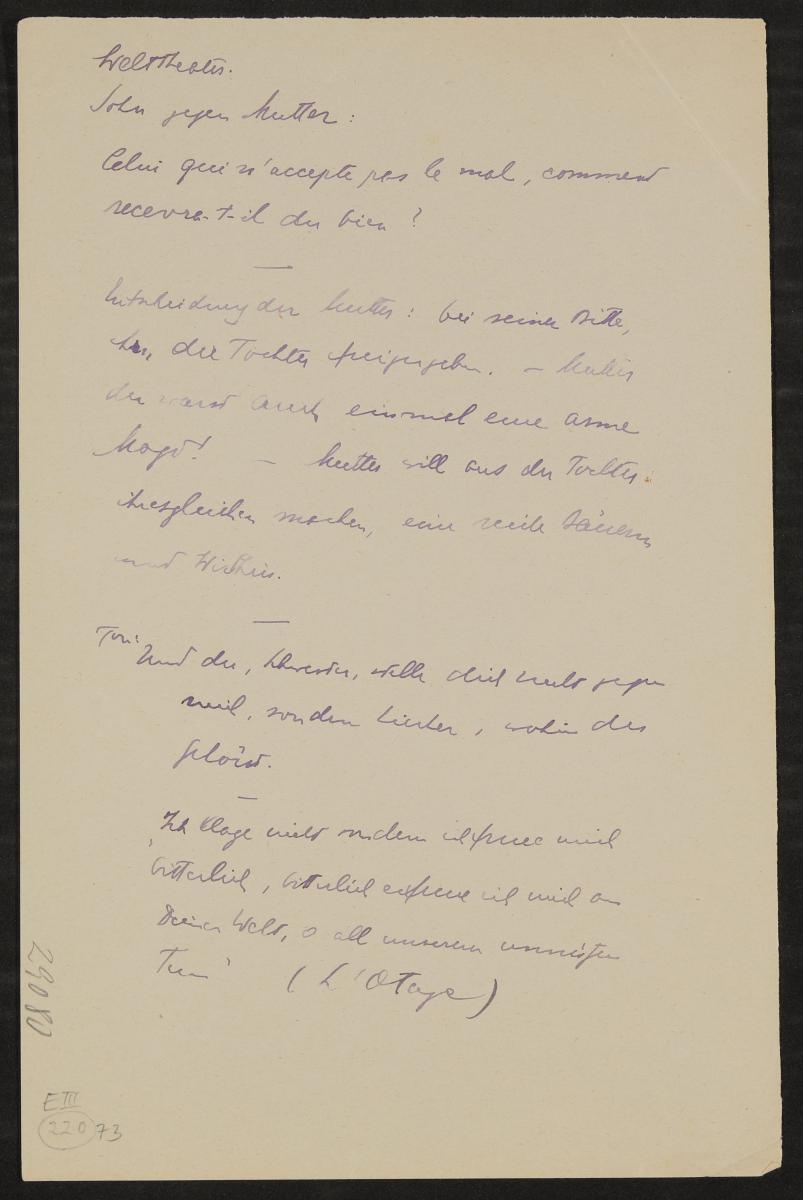 Welttheater.
Sohn gegen Mutter:
Celui qui n'accepte pas le mal, comment
recevra-t-il du bien?
Entscheidung der Mutter: bei seiner Bitte,
ihm die Tochter freizugeben. – Mutter
du warst auch einmal eine arme
Magd! – Mutter will aus der Tochter
ihresgleichen machen, eine reiche Bäuerin
und Wirthin.
Toni: Und du, Schwester, stelle dich nicht gegen
mich, sondern hierher, wohin du
gehörst.
Ich klage nicht sondern ich freue mich
bitterlich, bitterlich erfreue ich mich an
Deiner Welt, o all unserem unnützen
Tun' (L'Otage)
29080
E III
220 73